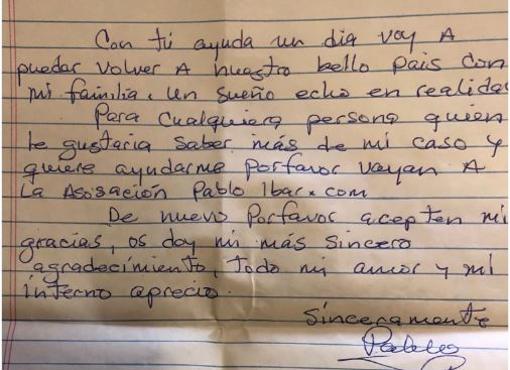 Con tú ayuda un dia voy A
puedar volver A nuestro bello pais con
mi familia. Un sueño echo en realidad
Para cualquiera persona quien
le gustaria saber más de mi caso y
quiere ayudarme Porfavor vayan A
La Asosación Pablo Ibar.com
De nuevo Porfavor acepten mi
gracias, os doy mi más sincero
agradecimiento, todo mi amor y mi
interno aprecio.
Sinceramente
Pablo